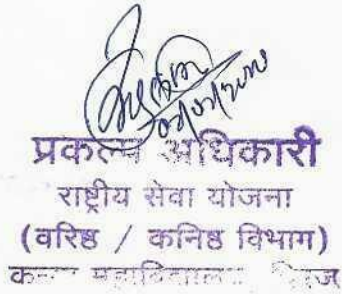 प्रकल्प अधिकारी
राष्ट्रीय सेवा योजना
(वरिष्ठ / कनिष्ठ विभाग)
कन्या महाविद्यालय